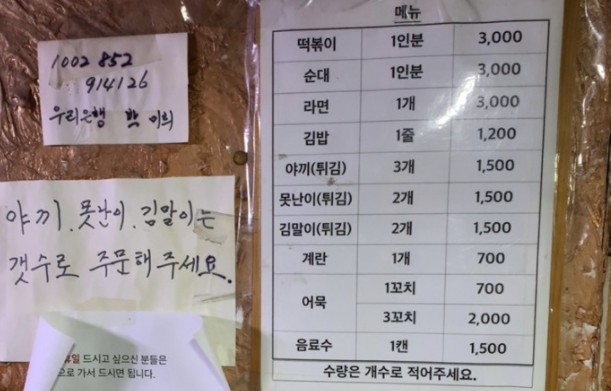 1002 852
914126
우리은행 박 이희
야끼. 못난이. 김말이는
갯수로 주문해주세요.
일 드시고 싶으신 분들은
으로 가서 드시면 됩니다.
메뉴
떡볶이 1인분 3,000
순대 1인분 3,000
라면 1개 3,000
김밥 1줄 1,200
야끼(튀김) 3개 1,500
못난이(튀김) 2개 1,500
김말이(튀김) 2개 1,500
계란 1개 700
어묵 1꼬치 700
3꼬치 2,000
음료수 1캔 1,500
수량은 개수로 적어주세요.